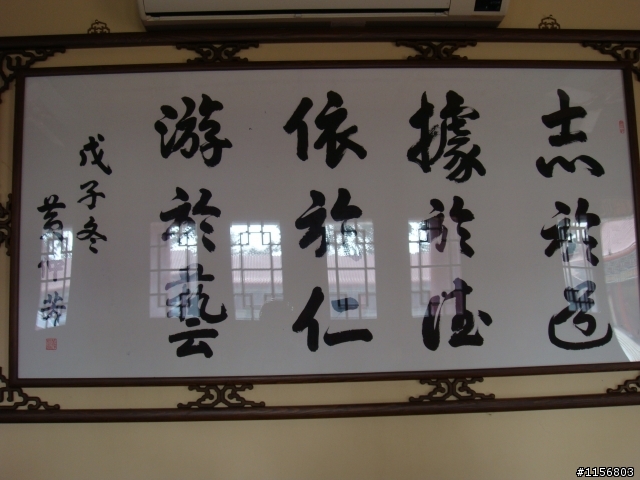 志於道
據於德
依於仁
游於藝
戊子冬
#1156803